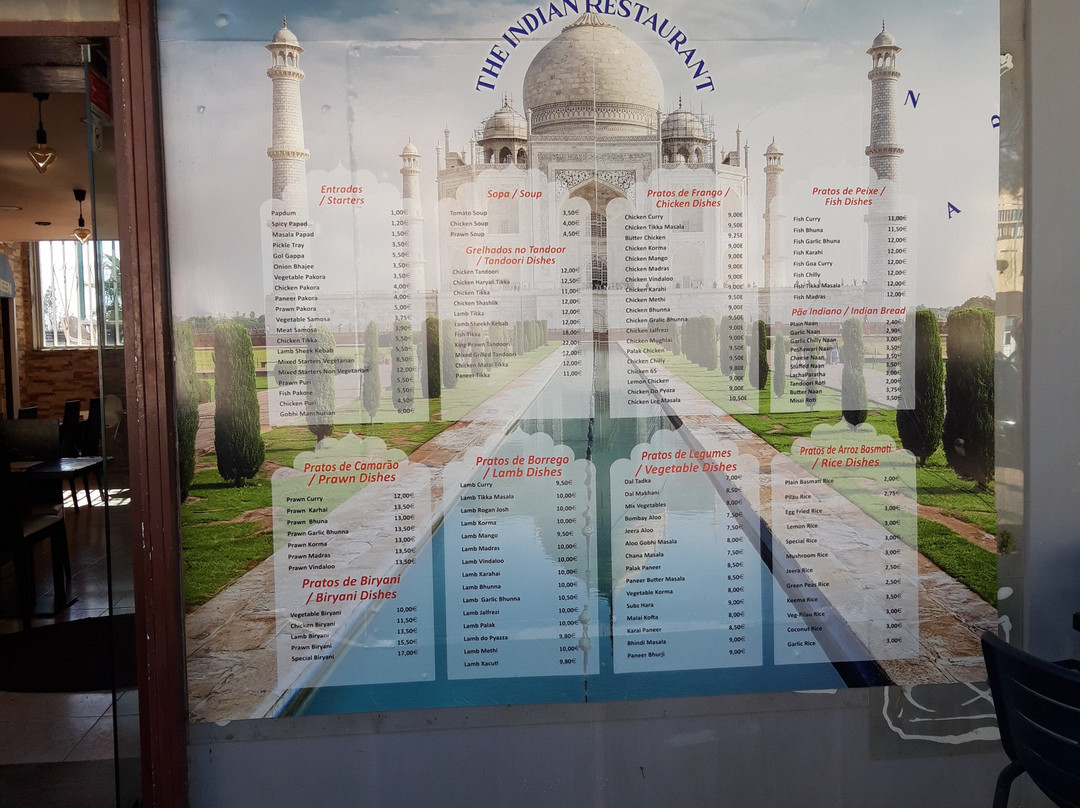 THE INDIAN RESTAURANT
N
A
Entradas
/ Starters
Papdum 1,00€
Spicy Papad 1,20€
Masala Papad 1,50€
Pickle Tray 3,50€
Gol Gappa 5,50€
Onion Bhajee 3,50€
Vegetable Pakora 3,50€
Chicken Pakora 4,00€
Paneer Pakora 4,00€
Prawn Pakora 5,00€
Vegetable Samosa 3,75€
Meat Samosa 3,90€
Chicken Tikka 5,50€
Lamb Sheek Kebab 5,50€
Mixed Starters Vegetarian 8,50€
Mixed Starters Non Vegetarian 12,00€
Prawn Puri 5,50€
Fish Pakore 5,50€
Chicken Puri 4,50€
Gobhi Manchurian 6,00€
Sopa / Soup
Tomato Soup 3,50€
Chicken Soup 4,00€
Prawn Soup 4,50€
Grelhados no Tandoor
/ Tandoori Dishes
Chicken Tandoori 12,00€
Chicken Haryali Tikka 12,50€
Chicken Tikka 11,00€
Chicken Shashlik 12,00€
Lamb Tikka 12,00€
Lamb Sheekh Kebab 12,00€
Fish Tikka 18,00€
King Prawn Tandoori 22,00€
Mixed Grilled Tandoori
Chicken Malai Tikka 12,00€
Paneer Tikka 11,00€
Pratos de Frango /
Chicken Dishes
Chicken Curry 9,00€
Chicken Tikka Masala 9,00€
Butter Chicken 9,25€
Chicken Korma 9,00€
Chicken Mango 9,00€
Chicken Madras 9,00€
Chicken Vindaloo 9,00€
Chicken Karahi 9,00€
Chicken Methi 9,50€
Chicken Bhunna 9,00€
Chicken Gralic Bhunna 9,00€
Chicken Jalfrezi 9,00€
Chicken Mughlai 9,00€
Palak Chicken 9,50€
Chicken Chilly 9,50€
Chicken 65 9,80€
Lemon Chicken 9,00€
Chicken Do Pyaza 9,00€
Chicken Leg Masala 10,50€
Pratos de Peixe /
Fish Dishes
Fish Curry 11,00€
Fish Bhuna 11,50€
Fish Garlic Bhuna 12,00€
Fish Karahi 12,00€
Fish Goa Curry 12,00€
Fish Chilly 12,00€
Fish Tikka Masala 12,00€
Fish Madras 12,00€
Pão Indiano / Indian Bread
Plain Naan 2,40€
Garlic Naan 2,90€
Garlic Chilly Naan 3,00€
Peshawari Naan 3,50€
Cheese Naan 3,50€
Stuffed Naan 3,50€
LachaParatha 3,00€
Tandoori Roti 2,00€
Butter Naan 3,00€
Missi Roti 3,50€
Pratos de Camarão
/ Prawn Dishes
Prawn Curry 12,00€
Prawn Karhai 13,50€
Prawn Bhuna 13,00€
Prawn Garlic Bhunna 13,50€
Prawn Korma 13,00€
Prawn Madras 13,50€
Prawn Vindaloo 13,50€
Pratos de Biryani
/ Biryani Dishes
Vegetable Biryani 10,00€
Chicken Biryani 11,50€
Lamb Biryani 13,50€
Prawn Biryani 15,50€
Special Biryani 17,00€
Pratos de Borrego
/ Lamb Dishes
Lamb Curry 9,50€
Lamb Tikka Masala 10,00€
Lamb Rogan Josh 10,00€
Lamb Korma 10,00€
Lamb Mango 9,50€
Lamb Madras 10,00€
Lamb Vindaloo 10,00€
Lamb Karahai 10,00€
Lamb Bhunna 10,00€
Lamb Garlic Bhunna 10,50€
Lamb Jalfrezi 10,00€
Lamb Palak 10,00€
Lamb do Pyazza 9,80€
Lamb Methi 10,00€
Lamb Xacuti 9,80€
Pratos de Legumes
/ Vegetable Dishes
Dal Tadka 7,00€
Dal Makhani 8,50€
Mix Vegetables 8,00€
Bombay Aloo 7,50€
Jeera Aloo 7,50€
Aloo Gobhi Masala 8,00€
Chana Masala 7,50€
Palak Paneer 8,50€
Paneer Butter Masala 8,50€
Vegetable Korma 8,00€
Subz Hara 9,00€
Malai Kofta 8,00€
Karai Paneer 8,50€
Bhindi Masala 9,00€
Paneer Bhurji 9,00€
Pratos de Arroz Basmati
/ Rice Dishes
Plain Basmati Rice 2,00€
Pilau Rice 2,75€
Egg Fried Rice 3,00€
Lemon Rice 3,00€
Special Rice 3,00€
Mushroom Rice 3,00€
Jeera Rice 2,50€
Green Peas Rice 2,50€
Keema Rice 3,50€
Veg Pilau Rice 3,00€
Coconut Rice 3,00€
Garlic Rice 3,00€